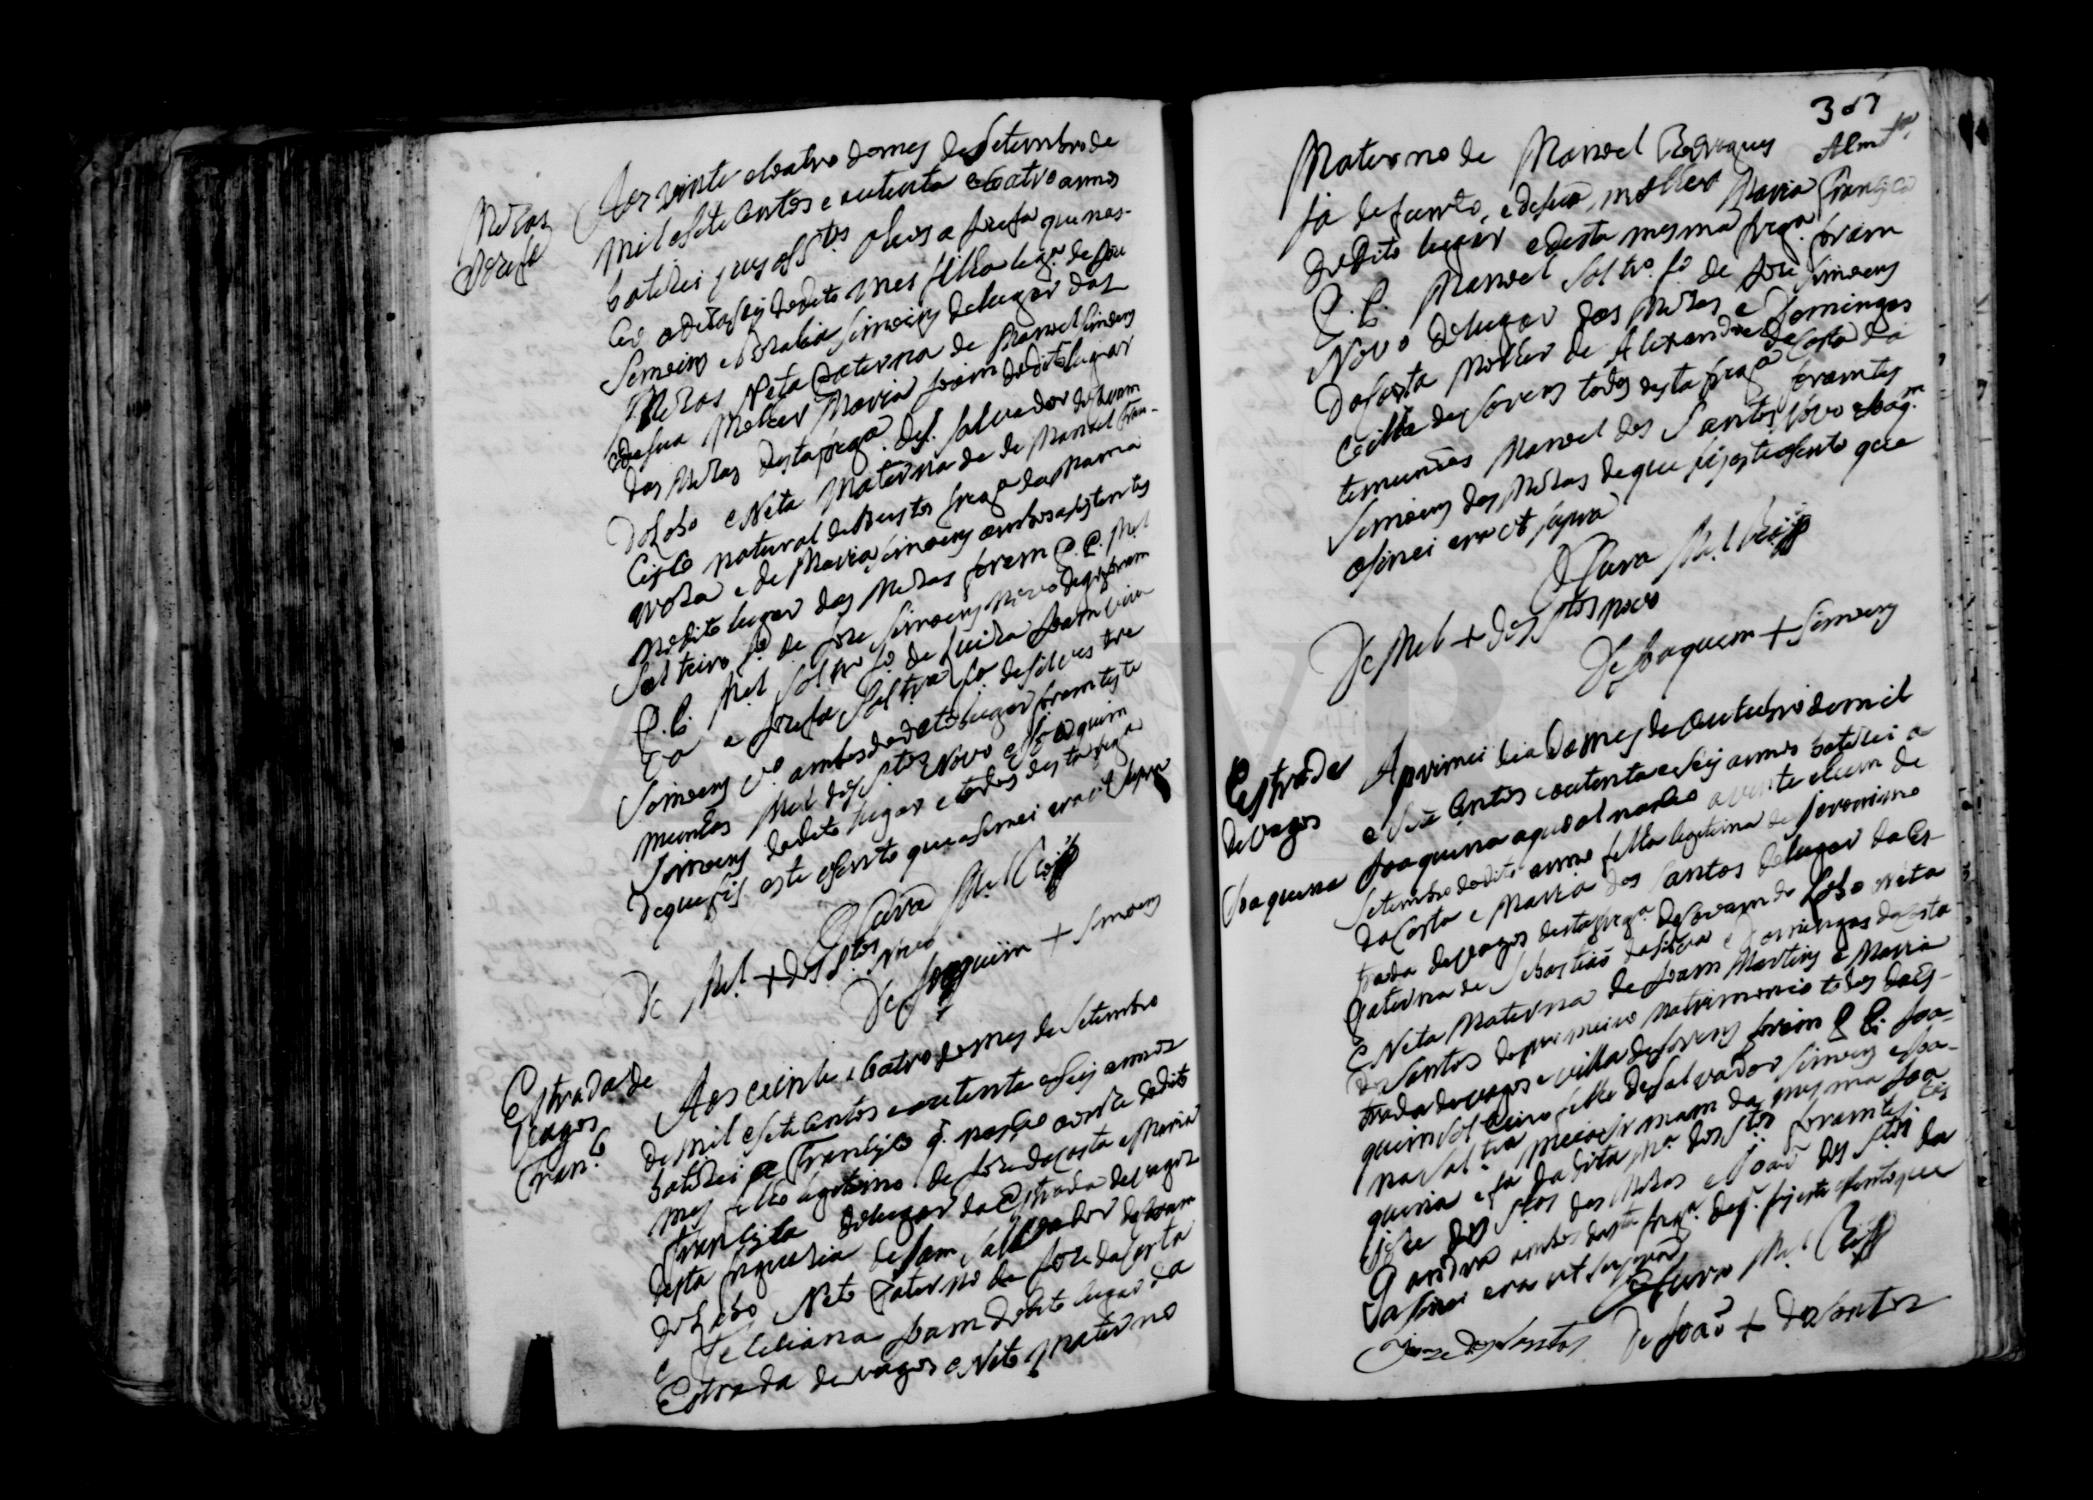 Miras
Josefa
Aos vinte e coatro do mes de Setembro de
mil e sete centos e outenta e coatro annos
batizei e pus os S.tos oleos a Josefa que nas-
ceo a dezaseis do dito mes filha leg.ma de Joze
Simoens e Rozalia Simoens do lugar das
Miras Neta Paterna de Manoel Simoens
e de sua molher Maria Joam do dito lugar
das Miras desta freg.a de S. Salvador de Covam
do Lobo e Neta Materna de de Manoel Fran-
cisco natural de Bustos freg.a da Mama
roza e de Maria Simoens ambos asistentes
no dito lugar das Miras foram P. P. M.el
Solteiro f.o de Joze Simoens novo de q. foram
P. P. M.el Solt.ro f.o de Luiza Joam viu
va e Josefa Solt.ra f.a de Silvestre
Simoens v.o ambos do dito lugar foram teste
munhas M.el dos S.tos Novo e Joaquim
Simoens do dito lugar e todos desta freg.a
de que fis este asento que asinei era ut supra
O Cura M.el
De M.el + dos S.tos novo
De Joaquim + Simoens
Estrada de
Vagos
Fran.co
Aos vinte e coatro do mes de Setembro
de mil e sete centos e outenta e seis annos
batizei a Francisco q. nasceo aonze do dito
mes filho legitimo de Joze da Costa e Maria
Francisca do lugar da Estrada de vagos
desta freguezia de Sam Salvador de Covam
do Lobo Neto Paterno de Joze da Costa
e Feleciana Joam do dito lugar da
Estrada de vagos e Neto materno
307
Materno de Manoel Rodrigues
ja defunto, e de sua molher Maria Francisca
do dito lugar e desta mesma freg.a foram
P. P. Manoel Solt.ro f.o de Joze Simoens
Novo do lugar das Miras e Domingas
da Costa molher de Alexandre da Costa da
villa de Sorens todos desta freg.a foram tes
temunhas Manoel dos Santos Novo e Joaq.m
Simoens das Miras de que fis este asento que
asinei era ut supra
O Cura M.el
De M.el + dos S.tos novo
De Joaquim + Simoens
Estrada
de vagos
Joaquina
A primeiro dia do mes de outubro de mil
e sete centos e outenta e seis annos batizei a
Joaquina a qual nasceo a vinte e hum de
Setembro do dito anno filha legitima de Jeronimo
da Costa e Maria dos Santos do lugar da Es-
trada de vagos desta freg.a de Covam do Lobo Neta
Paterna de Sebastiaõ da Silva e Domingas da Costa
e Neta Materna de Joam Martins e Maria
dos Santos de primeiro matrimonio todos da Es-
trada de vagos e villa de Sorens foram P. P. Joa-
quim Solteiro filho de Salvador Simoens e Joa-
na Solt.ra meia irmam da mesma Joa
quina e f.a da dita M.a dos S.tos foram tes.tas
Joze dos S.tos das Miras e Joaõ dos S.tos da
Gandra ambos desta freg.a de q. fis este asento que
asinei era ut supra
O Cura M.el
Joze dos Santos De Joaõ + dos Santos